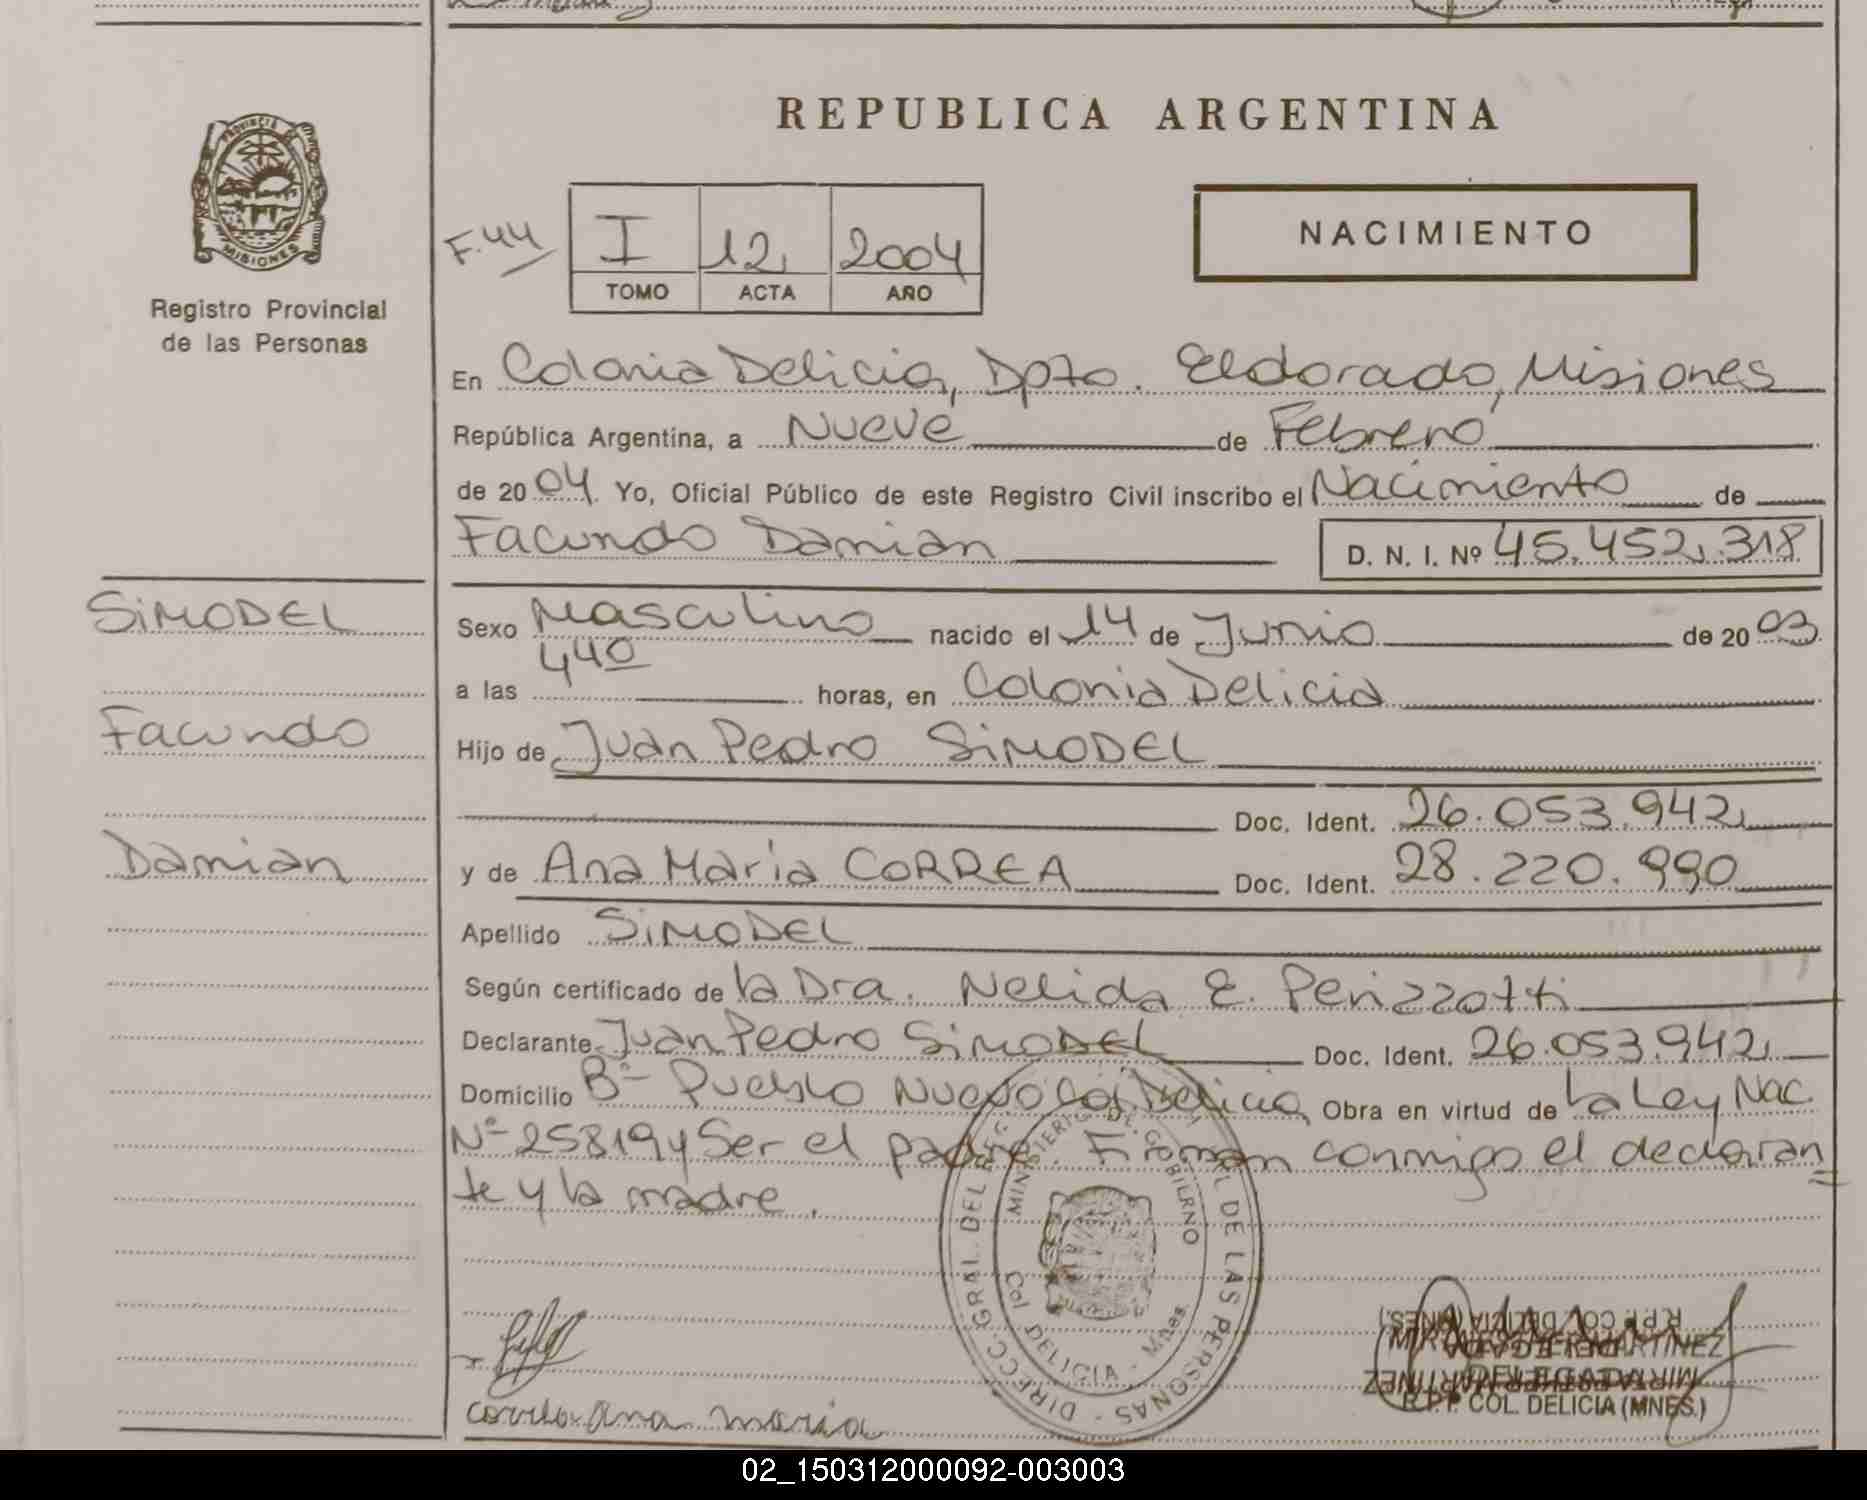 REPUBLICA ARGENTINA
PROVINCIA
MISIONES
Registro Provincial
de las Personas
F.44
I 12 2004
TOMO ACTA AÑO
NACIMIENTO
En Colonia Delicia, Dpto. Eldorado, Misiones
República Argentina, a Nueve de Febrero
de 2004. Yo, Oficial Público de este Registro Civil inscribo el Nacimiento de
Facundo Damian D. N. I. Nº 45.452.318
SiMODEL
Facundo
Damian
Sexo Masculino nacido el 14 de Junio de 2003
a las 440 horas, en Colonia Delicia
Hijo de Juan Pedro SiMODEL
Doc. Ident. 26.053.942
y de Ana María CORREA Doc. Ident. 28.220.990
Apellido SiMODEL
Según certificado de la Dra. Nelida E. Perizzotti
Declarante Juan Pedro SiMODEL Doc. Ident. 26.053.942
Domicilio Bº Pueblo Nuevo Col. Delicia Obra en virtud de la Ley Nac
Nº 25819 y Ser el padre. Firman conmigo el declaran=
te y la madre.
DIRECC GRAL. DEL REG. DE LAS PERSONAS
MINISTERIO DE GOBIERNO
Col DELICIA - Mnes.
correa Ana maria
R.P.P. COL. DELICIA (MNES.)
MARTINEZ
DELEGADA
R.P.P. COL. DELICIA (MNES.)
02_150312000092-003003